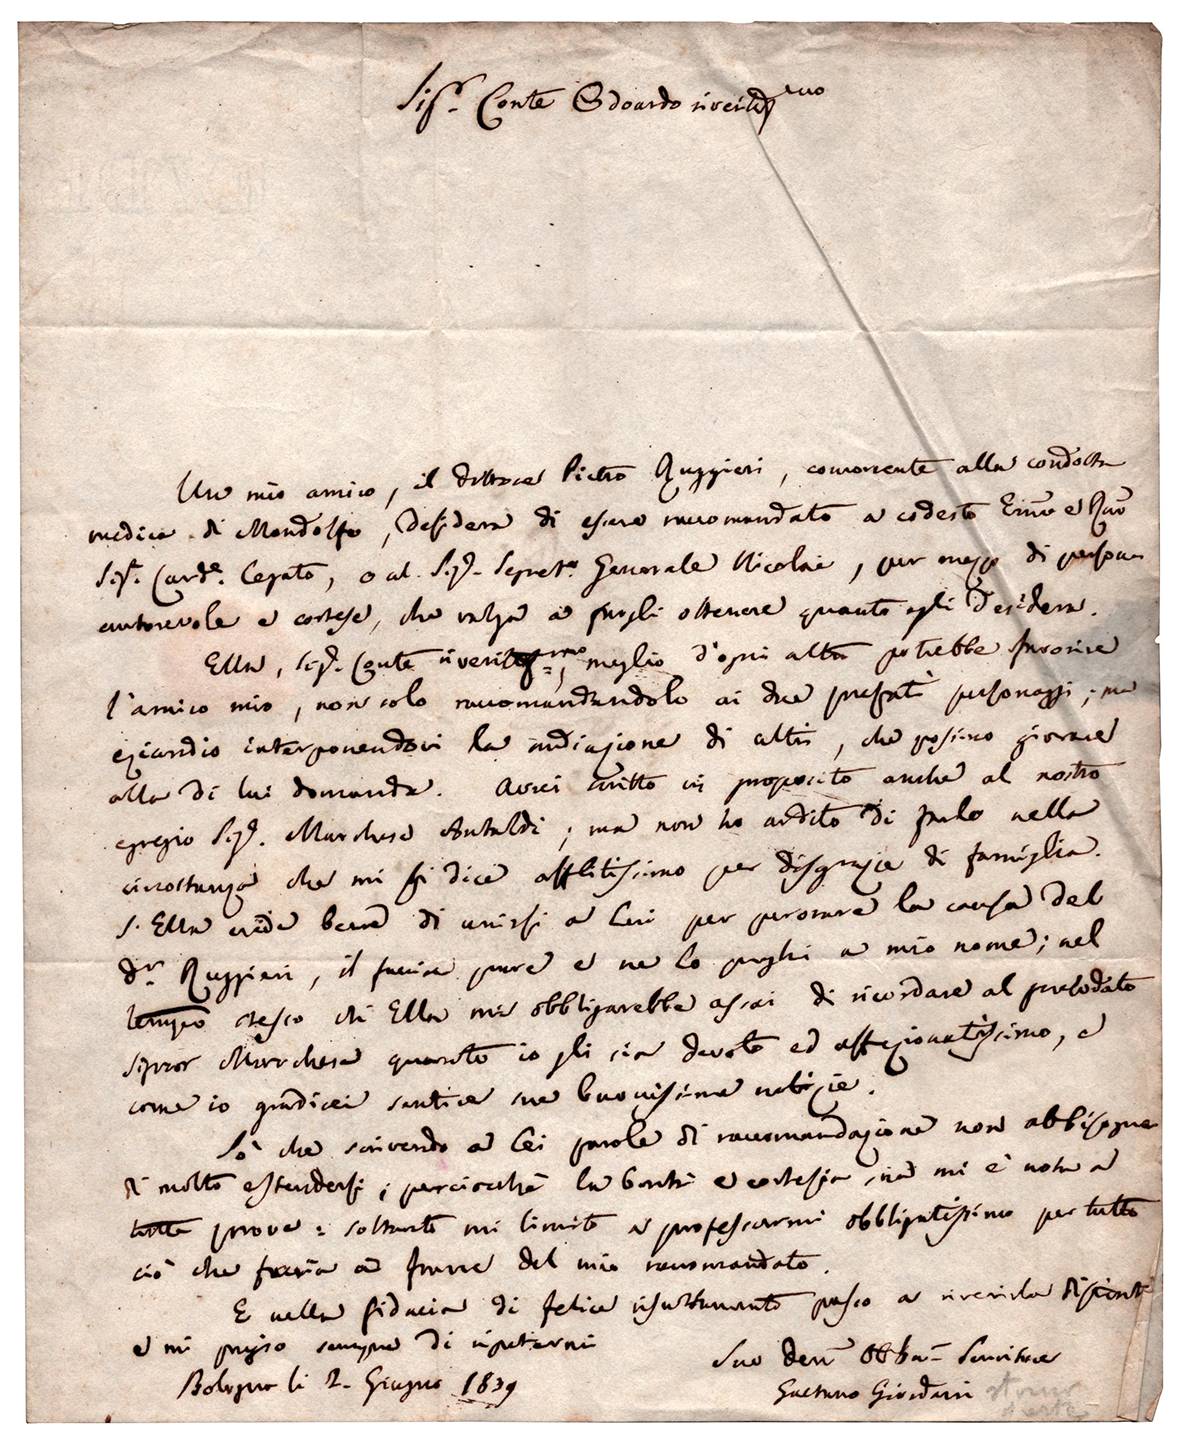 Sig.r Conte Edoardo riveritis.mo
Un mio amico, il dottore Pietro Ruggieri, concorrente alla condotta
medica di Mondolfo, desidera di essere raccomandato a codesto Emo e Rmo
Sig.r Card.e Legato, o al Sig.r Segret.o Generale Nicolai, per mezzo di persona
autorevole e cortese, che valga a fargli ottenere quanto egli desidera.
Ella, Sig.r Conte riveritis.mo, meglio d'ogni altra potrebbe favorire
l'amico mio, non solo raccomandandolo ai due prefati personaggi; ma
eziandio interponendovi la mediazione di altri, che possino giovare
alla di lui domanda. Avrei scritto in proposito anche al nostro
egregio Sig.r Marchese Antaldi; ma non ho ardito di farlo nella
circostanza che mi si dice afflitissimo per disgrazie di famiglia.
S. Ella crede bene di unirsi a Lui per perorare la causa del
d.r Ruggieri, il faccia pure e ne lo preghi a mio nome; nel
tempo stesso chi Ella mi obbligarebbe assai di ricordare al prelodato
signor Marchese quanto io gli sia devoto ed affezionatissimo, e
come io gradirei sentire sue buonissime notizie.
So' che scrivendo a Lei parole di raccomandazione non abbisogna
di molto estendersi; perciocchè la bontà e cortesia sua mi è nota a
tutte prove: soltanto mi limito a professarmi obbligatissimo per tutto
ciò che farà a favore del mio raccomandato.
E nella fiducia di felice risultamento passo a riverirla distint
e mi pregio sempre di ripetermi
Suo Dev.o Obb.mo Servitore
Bologna li 2. Giugno 1839
Gaetano Giordani